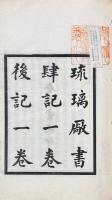 琉璃厰書
肆記一卷
後記一卷